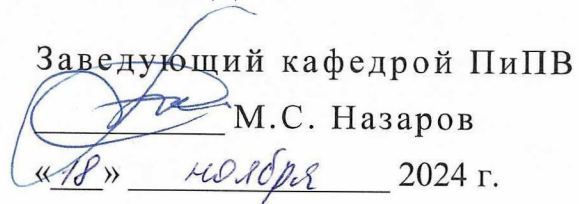 Заведующий кафедрой ПиПВ
М.С. Назаров
«18» ноября 2024 г.